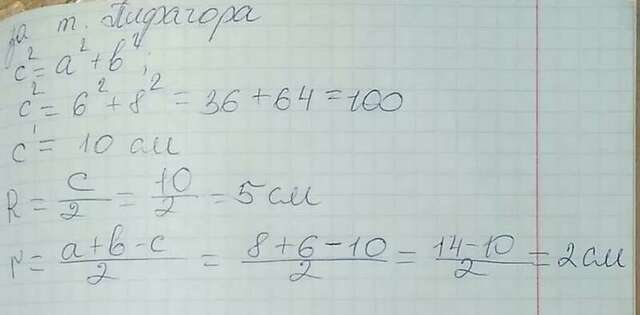 За т. Піфагора
c² = a² + b²;
c² = 6² + 8² = 36 + 64 = 100
c = 10 см
R = c/2 = 10/2 = 5 см
r = a+b-c/2 = 8+6-10/2 = 14-10/2 = 2 см